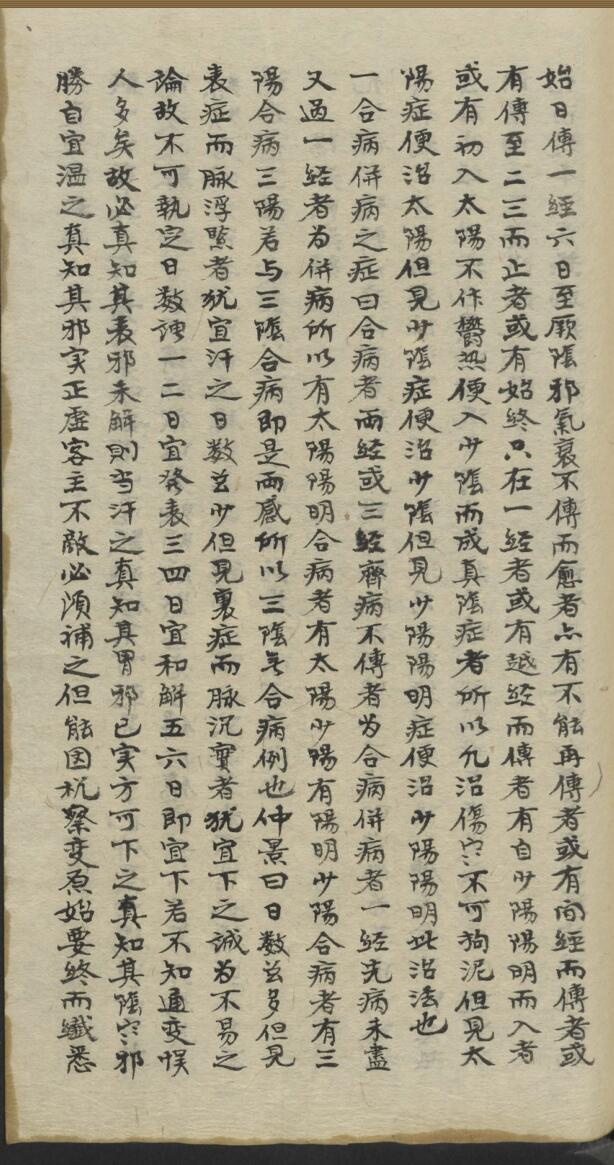 始日傳一經六日至厥陰邪氣衰不傳而愈者亦有不能再傳者或有间經而傳者或
有傳至二三而止者或有始終只在一經者或有越經而傳者有自少陽陽明而入者
或有初入太陽不作鬱熱便入少陰而成真陰症者所以凢治傷寒不可狗泥但見太
陽症便治太陽但見少陰症便治少陰但見少陽陽明症便治少陽陽明此治法也
一合病併病之症曰合病者兩經或三經齊病不傳者为合病併病者一經先病未盡
又过一經者为併病所以有太陽陽明合病者有太陽少陽有陽明少陽合病者有三
陽合病三陽若与三陰合病即是兩感所以三陰无合病例也仲景曰日數玆多但見
表症而脉浮緊者犹宜汗之日數玆少但見裏症而脉沉實者犹宜下之誠为不易之
論故不可執定日数謬一二日宜發表三四日宜和解五六日即宜下若不知通变悮
人多矣故必真知其表邪未解則当汗之真知其胃邪已实方可下之真知其陰寒邪
勝自宜温之真知其邪实正虛客主不敵必湏補之但能因机察变原始要終而纖悉